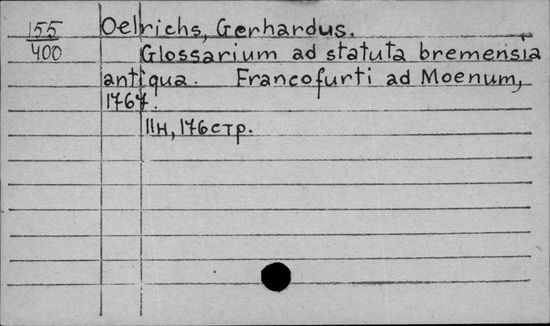 155
400
Oelrichs, Gerhardus.
Glossarium ad statuta bremensia
antiqua. Francofurti ad Moenum,
1767.
11н, 176 стр.